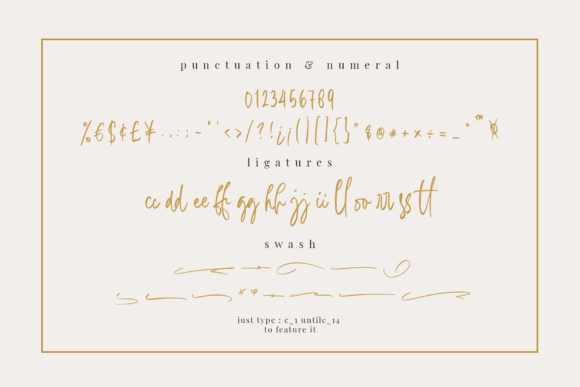 punctuation & numeral
0123456789
%€$¢£¥.,:;~"'<>/?!¿¡()[]{}*&@#+×÷=_°™
ligatures
cc dd ee ff gg hh jj ii ll oo rr ss tt
swash
just type : c_1 untilc_14
to feature it